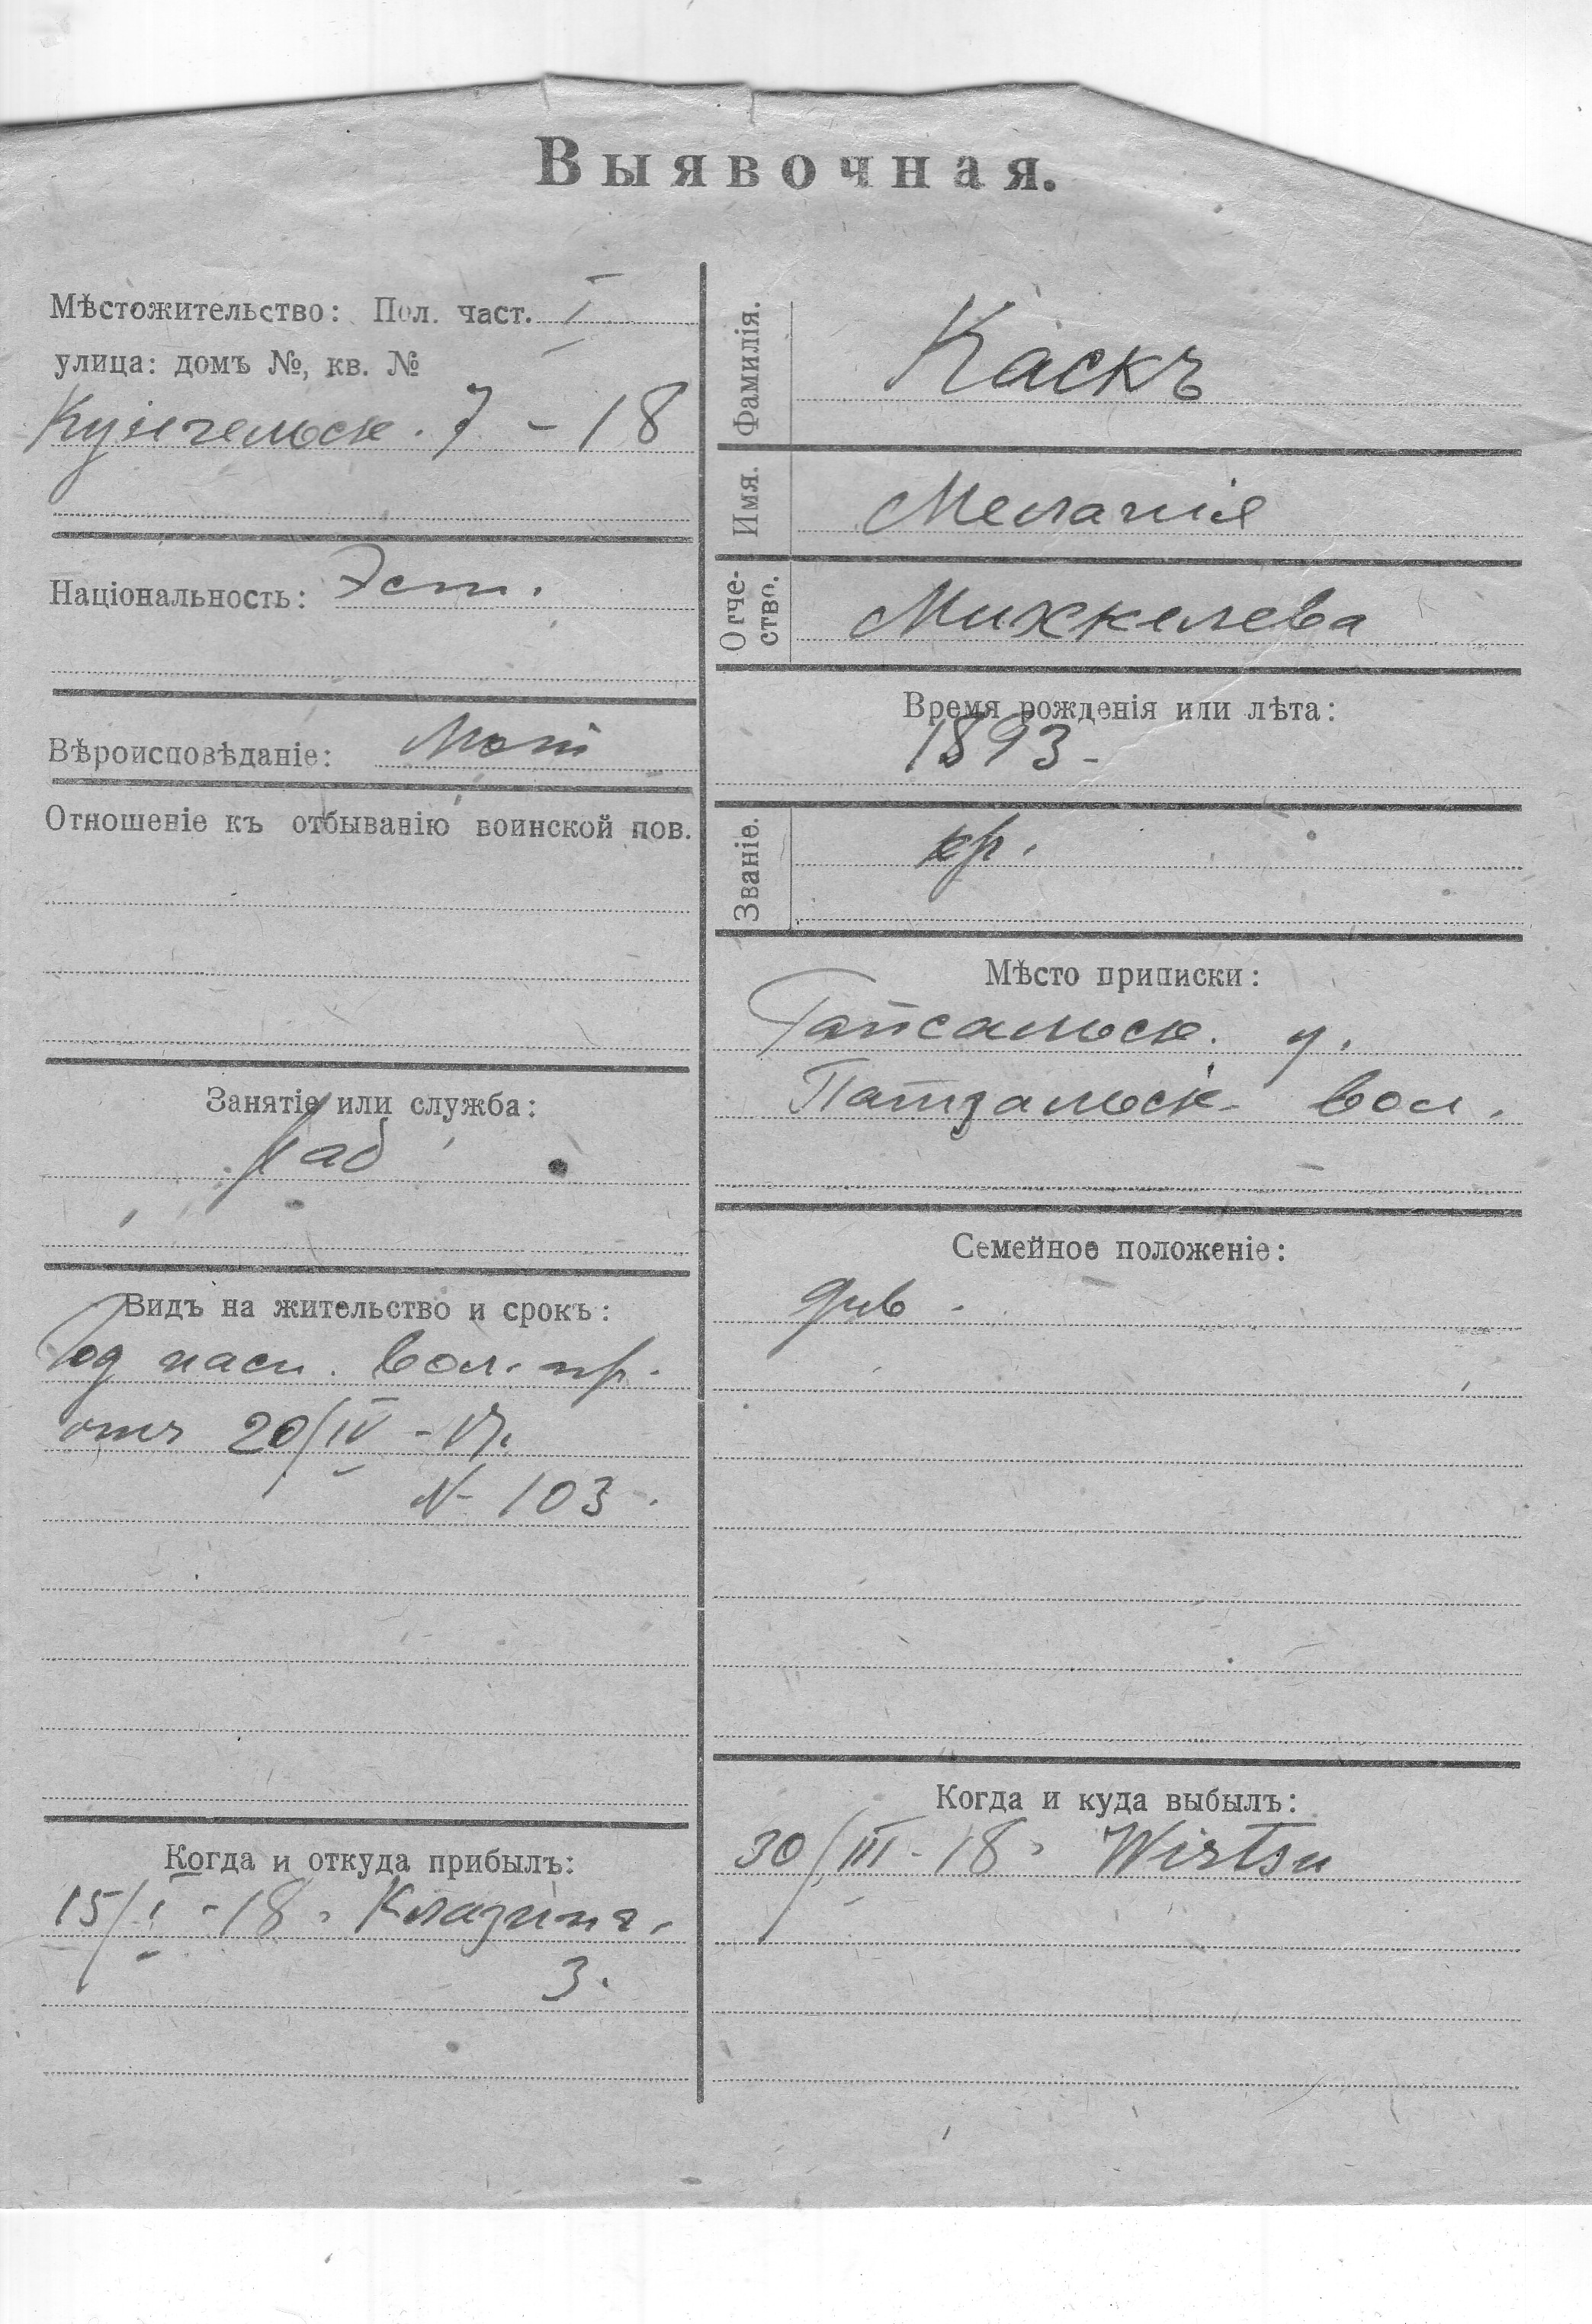 Выявочная.
Мѣстожительство: Пол. част. I
улица: домъ №, кв. №
7 - 18
Національность: Эст.
Вѣроисповѣданіе:
Отношеніе къ отбыванію воинской пов.
Занятіе или служба:
Раб
Видъ на жительство и срокъ:
Год пасп. вол. пр.
отъ 20/IV - 17.
N 103.
Когда и откуда прибылъ:
15/I - 18.
3.
Фамилія. Каскъ
Имя. Меланія
Отчество. Михкелева
Время рожденія или лѣта:
1893 -
Званіе. кр.
Мѣсто приписки:
Гапсальск. у.
Патзальск. вол.
Семейное положеніе:
дѣв.
Когда и куда выбылъ:
30/III - 18. Wirtsu